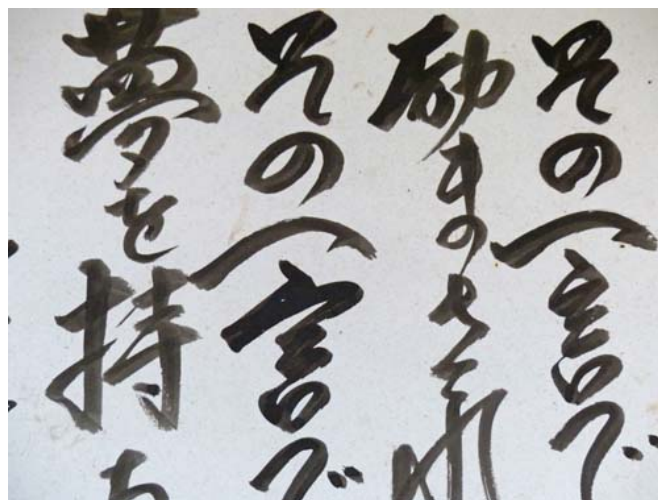 その一言で
励まされ
その一言で
夢を持ち